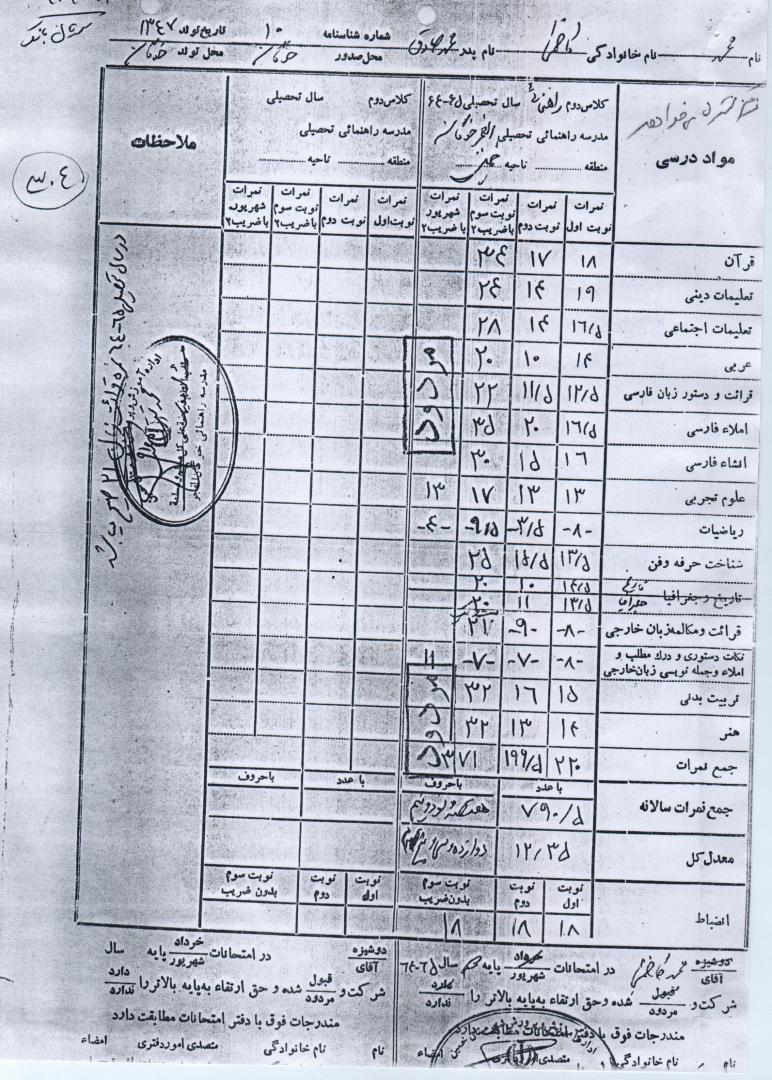 نام محمد نام خانوادگی کاظمی نام پدر محمدصادق شماره شناسنامه ۱۰ تاریخ تولد ۱۳۴۷
محل صدور محل تولد
۳۰۴
مواد درسی
کلاس دوم راهنمائی سال تحصیلی ۶۵-۶۴
مدرسه راهنمائی تحصیلی
منطقه ناحیه خمین
کلاس دوم سال تحصیلی
مدرسه راهنمائی تحصیلی
منطقه ناحیه
ملاحظات
نمرات نوبت اول نمرات نوبت دوم نمرات نوبت سوم با ضریب۲ نمرات شهریور با ضریب۲ نمرات نوبت اول نمرات نوبت دوم نمرات نوبت سوم با ضریب۲ نمرات شهریور با ضریب۲
قرآن ۱۸ ۱۷ ۳۴
تعلیمات دینی ۱۹ ۱۴ ۲۴
تعلیمات اجتماعی ۱۶/۵ ۱۴ ۲۸
عربی ۱۴ ۱۰ ۲۰
قرائت و دستور زبان فارسی ۱۲/۵ ۱۱/۵ ۲۲
املاء فارسی ۱۶/۵ ۲۰ ۳۵
انشاء فارسی ۱۶ ۱۵ ۳۰
مردود
علوم تجربی ۱۳ ۱۳ ۱۷ ۱۳
ریاضیات -۸- -۳/۵ -۹/۵ -۴-
شناخت حرفه وفن ۱۳/۵ ۱۵/۵ ۲۵
تاریخ و جغرافیا
تاریخ ۱۴/۵ ۱۰ ۲۰
جغرافیا ۱۳/۵ ۱۱ ۲۰
قرائت ومکالمه زبان خارجی -۸- -۹- ۲۱
نکات دستوری و درك مطلب و
املاء وجمله نویسی زبان خارجی -۸- -۷- -۷- =
تربیت بدنی ۱۵ ۱۶ ۳۲
هنر ۱۴ ۱۳ ۳۲
مردود
جمع نمرات ۲۲۰ ۱۹۹/۵ ۳۷۱
با عدد با حروف با عدد با حروف
جمع نمرات سالانه ۷۹۰/۵ هفتصد و نود و نیم
معدل کل ۱۲/۳۵
نوبت اول نوبت دوم نوبت سوم بدون ضریب نوبت اول نوبت دوم نوبت سوم بدون ضریب
انضباط ۱۸ ۱۸ ۱۸
دوشیزه آقای محمد کاظمی در امتحانات خرداد شهریور پایه سال ۶۵-۶۴
شرکت و قبول مردود شده وحق ارتقاء به پایه بالاتر را دارد ندارد
مندرجات فوق با دفتر امتحانات مطابقت دارد
نام نام خانوادگی متصدی امور دفتری امضاء
دوشیزه آقای در امتحانات خرداد شهریور پایه سال
شرکت و قبول مردود شده و حق ارتقاء به پایه بالاتر را دارد ندارد
مندرجات فوق با دفتر امتحانات مطابقت دارد
نام نام خانوادگی متصدی امور دفتری امضاء